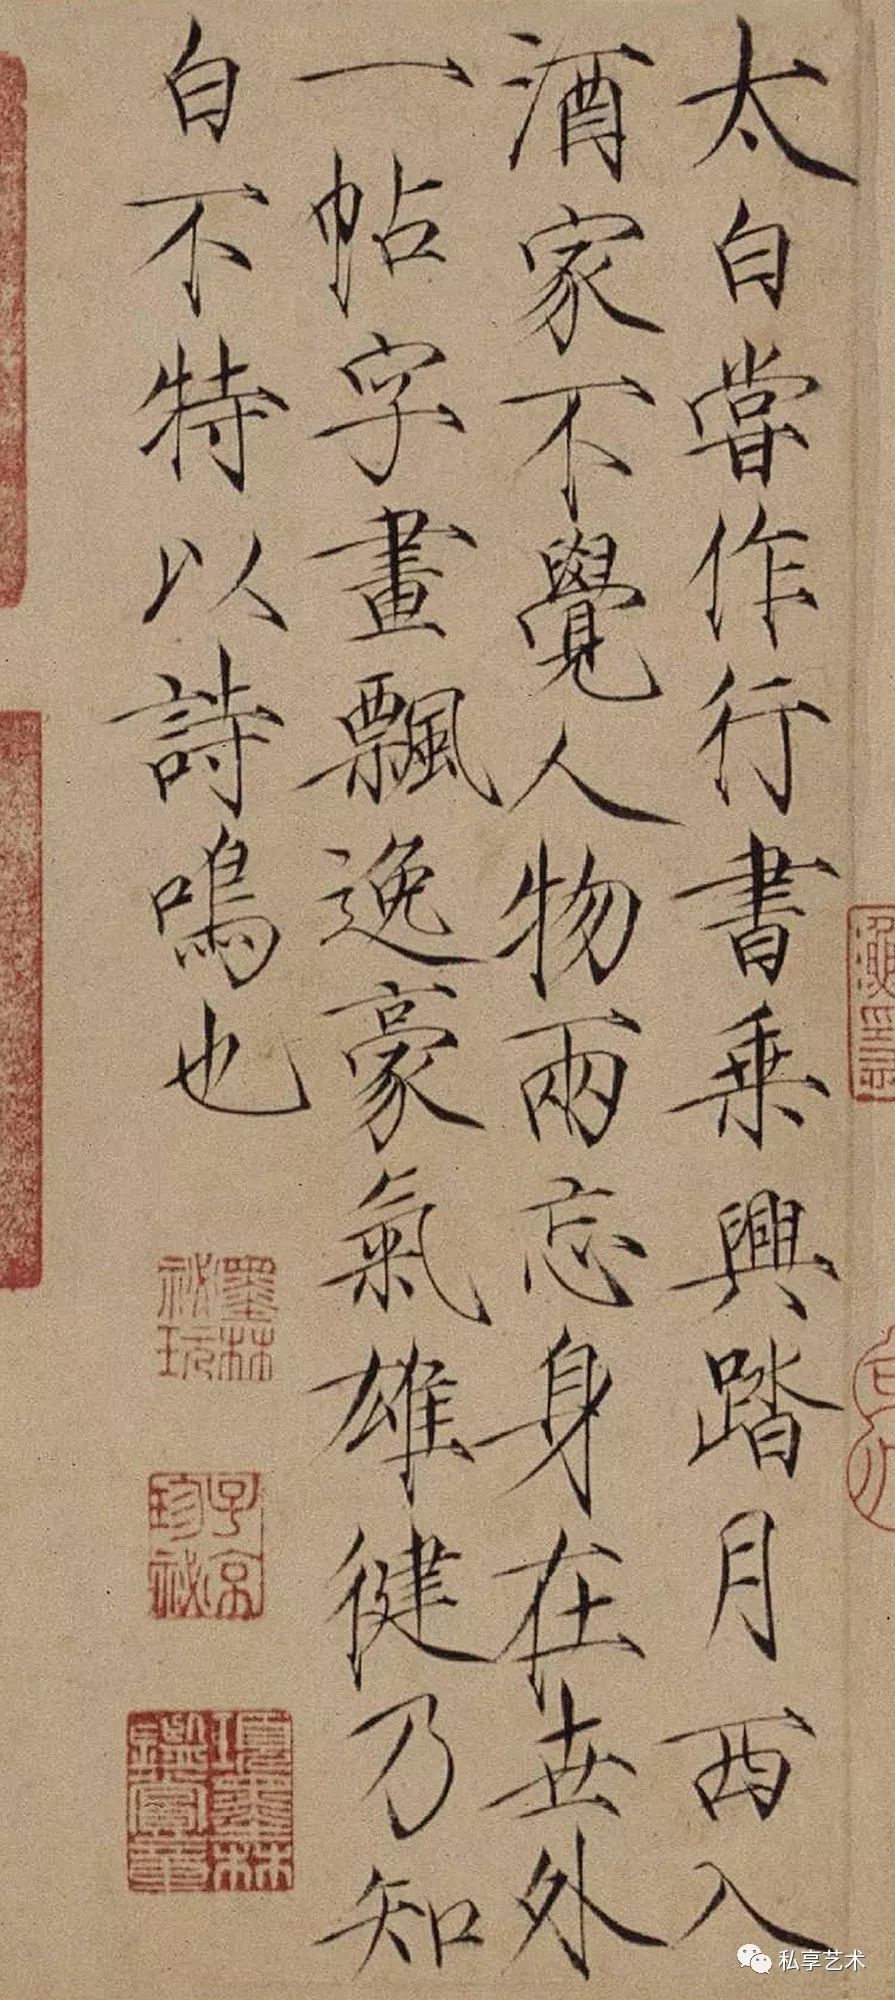 太白嘗作行書乘興踏月西入
酒家不覺人物兩忘身在世外
一帖字畫飄逸豪氣雄健乃知
白不特以詩鳴也
墨林
祕玩
子京
珍祕
項墨林
鑑賞章
私享艺术